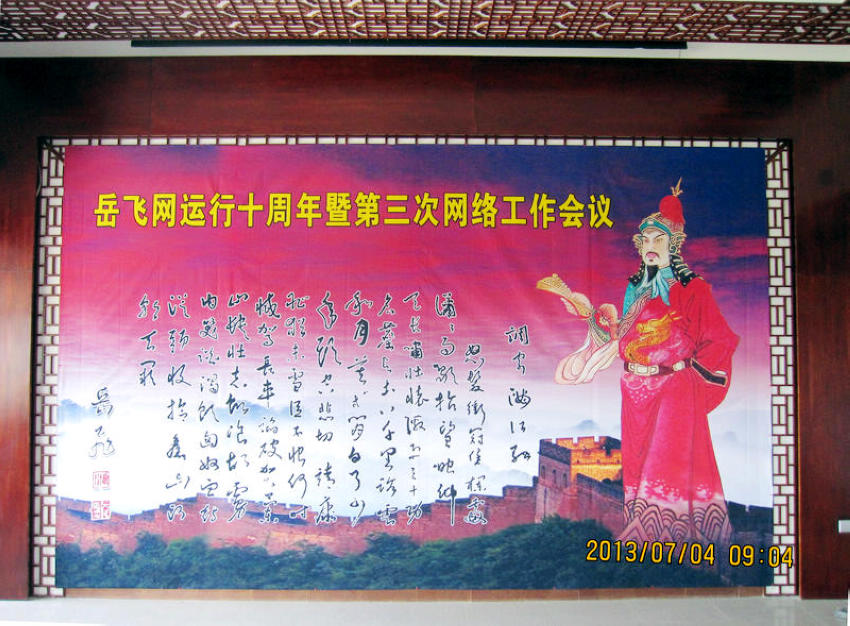 岳飞网运行十周年暨第三次网络工作会议
调寄满江红
怒髮衝冠凭欄處
瀟瀟雨歇抬望眼仰
天長嘯壯懷激烈三十功
名塵与土八千里路雲
和月莫等閒白了少
年頭空悲切靖康
恥猶未雪臣子恨何时
滅駕長車踏破賀蘭
山缺壯志飢餐胡虜
肉笑談渴飲匈奴血待
從頭收拾舊山河
朝天闕
岳飛
2013/07/04 09:04